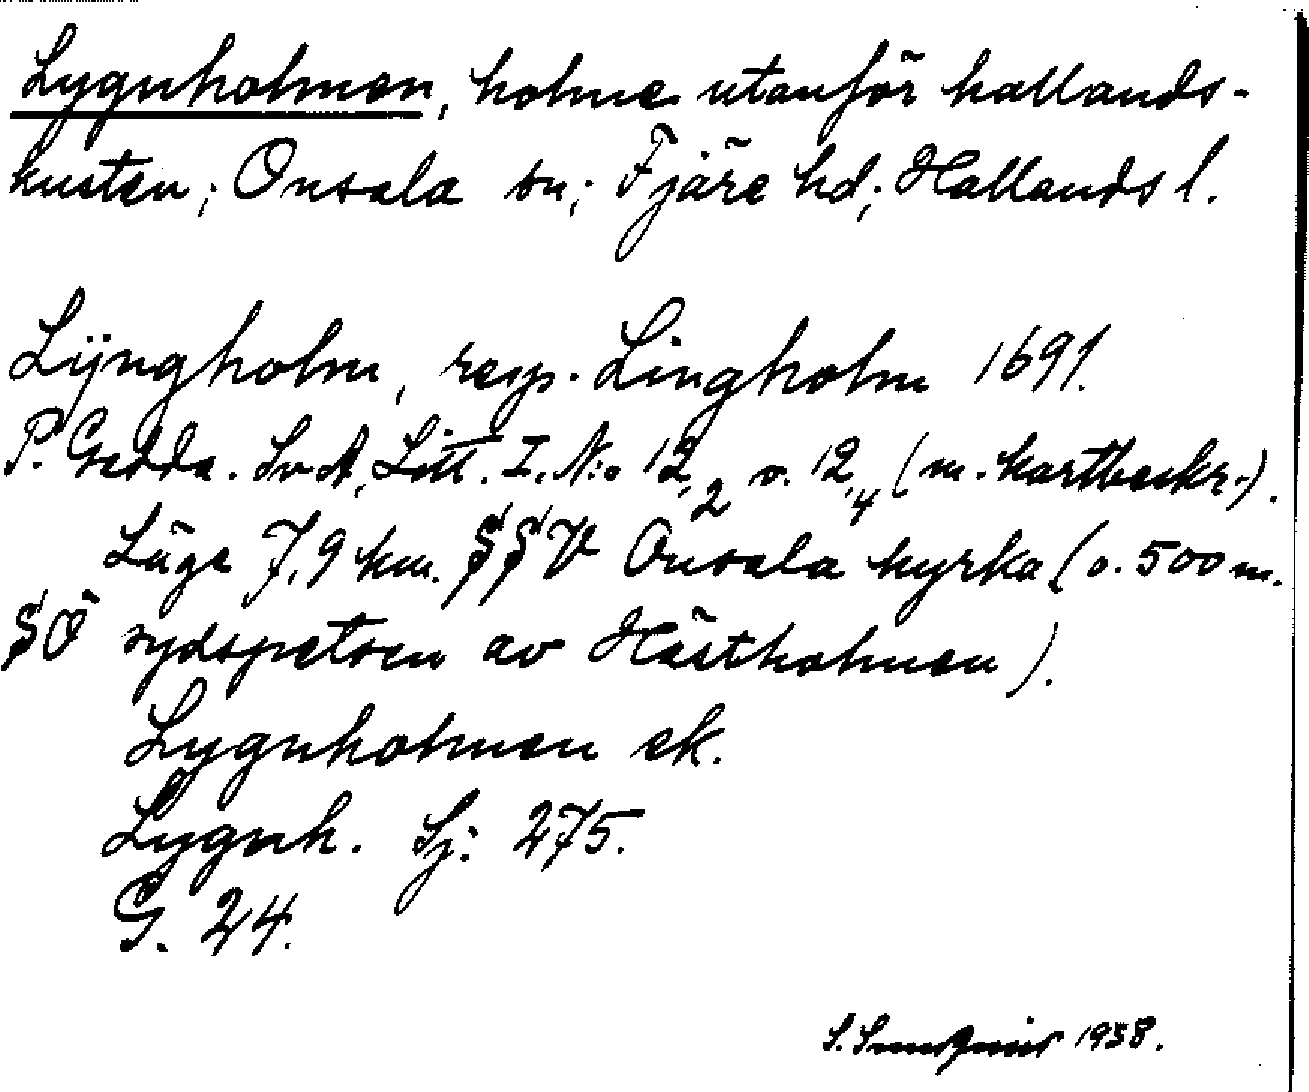 Lygnholmen, holme utanför hallands-
kusten; Onsala sn; Fjäre hd; Hallands l.
Lÿngholm, resp. Lingholm 1691.
P. Gedda. SvA, Litt. Z. N:o 12,2 o. 12,4 (m. kartbeskr.).
Läge 7,9 km. SSV Onsala kyrka (o. 500 m.
SÖ sydspetsen av Hästholmen).
Lygnholmen ek.
Lygnh. Sj: 275.
G. 24.
S. 1938.